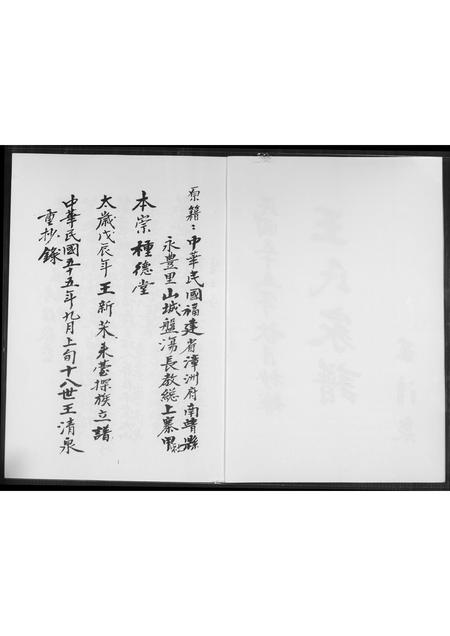 原籍：中華民國福建省漳洲府南靖縣
永豊里山城盤蕩長教総上寨甲
本崇種德堂
太歲戊辰年王新萊來臺探族立譜
中華民國五十五年九月上旬十八世王清泉
重抄錄
王氏家譜
清泉